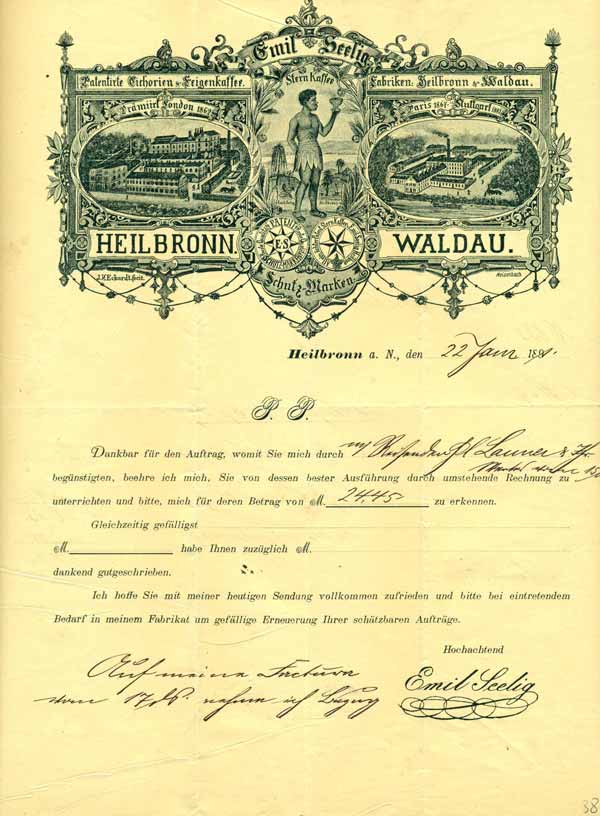 Emil Seelig
Patentirte Cichorien & Feigenkaffee.
Stern Kaffee
Fabriken: Heilbronn & Waldau.
Prämiirt London 1862
Paris 1867 Stuttgart 1881
PATENTIRTE
E.S.
HEILBRONN.
WALDAU.
Schutz-Marken
Heilbronn a. N., den 22 Janr 1881.
P. P.
Dankbar für den Auftrag, womit Sie mich durch m/ Reisenden H Launer
begünstigten, beehre ich mich, Sie von dessen bester Ausführung durch umstehende Rechnung zu
unterrichten und bitte, mich für deren Betrag von M. 24.45 zu erkennen.
Gleichzeitig gefälligst
M. habe Ihnen zuzüglich M.
dankend gutgeschrieben.
Ich hoffe Sie mit meiner heutigen Sendung vollkommen zufrieden und bitte bei eintretendem
Bedarf in meinem Fabrikat um gefällige Erneuerung Ihrer schätzbaren Aufträge.
Hochachtend
Emil Seelig
Auf meine Factura
vom 17 ds. nehme ich Bezug
38